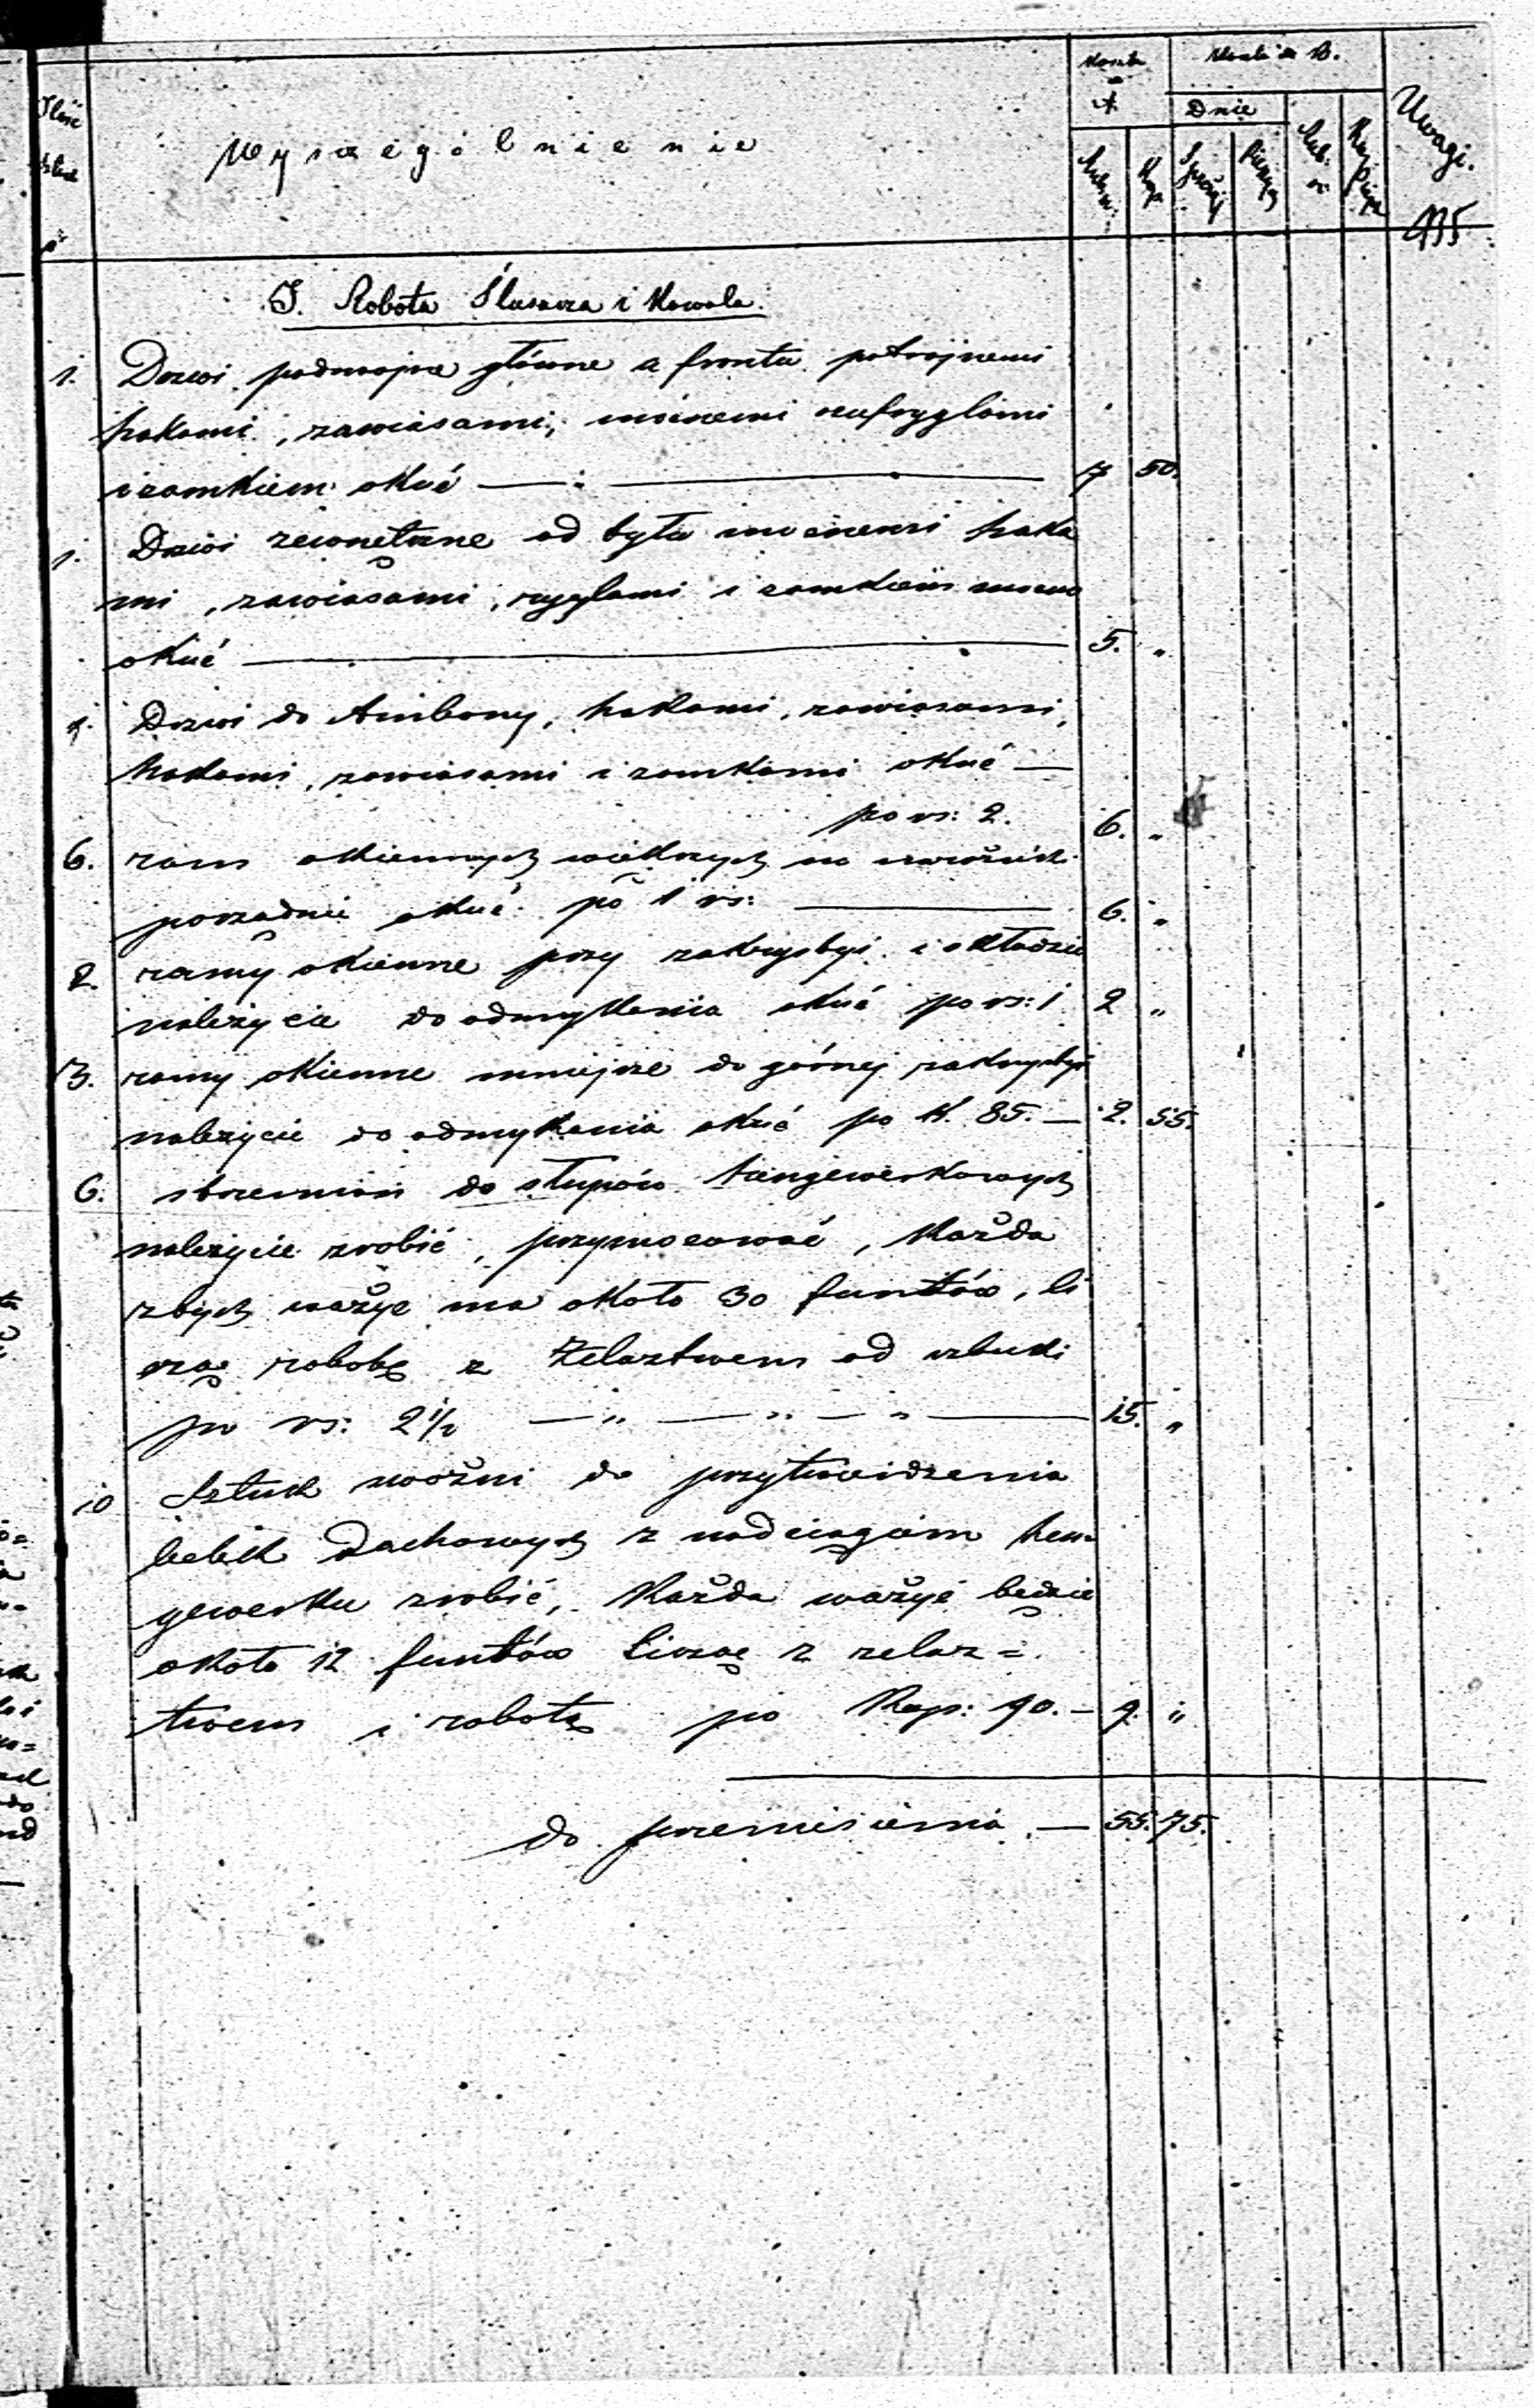 Ilość
sztuk
Wyszczególnienie
Koszta
A.
Koszta B.
Dnie
Uwagi.
Kop.
Sprzęż.
Piesze
Rub. sr.
935
I. Robota Ślusarza i Kowala.
1. Drzwi podwojne główne z frontu potrojnemi
hakami, zawiasami, mocnemi rufryglami
i zamkiem okuć — 7 50.
1. Drzwi zewnętrzne od tyłu mocnemi haka
mi, zawiasami, ryglami i zamkiem mocno
okuć — 5. "
Drzwi do Ambony, hakami, zawiasami,
hakami, zawiasami i zamkami okuć —
po rs: 2. 6. "
6. ram okiennych wiekszych na
porządnie okuć po 1 rs: — 6. "
2. ramy okienne przy zakrystyi i składzie
należycie do odmykania okuć po rs: 1 2 "
3. ramy okienne mniejsze do górnej zakrystyi
należycie do odmykania okuć po K. 85. — 2. 55.
6. strzemion do słupów hengewerkowych
należycie zrobić, przymocować, każda
z tych ważyć ma około 30 funtów, li
cząc robotę z żelaztwem od sztuki
po rs: 2 1/2 — " — " — " — 15. "
10 Sztuk do przytwierdzenia
belek dachowych z nadciągiem hen=
gewerku zrobić, każda ważyć będzie
około 12 funtów licząc z żelaz=
twem i robotą po Kop: 90. — 9. "
do przeniesienia — 55. 75.